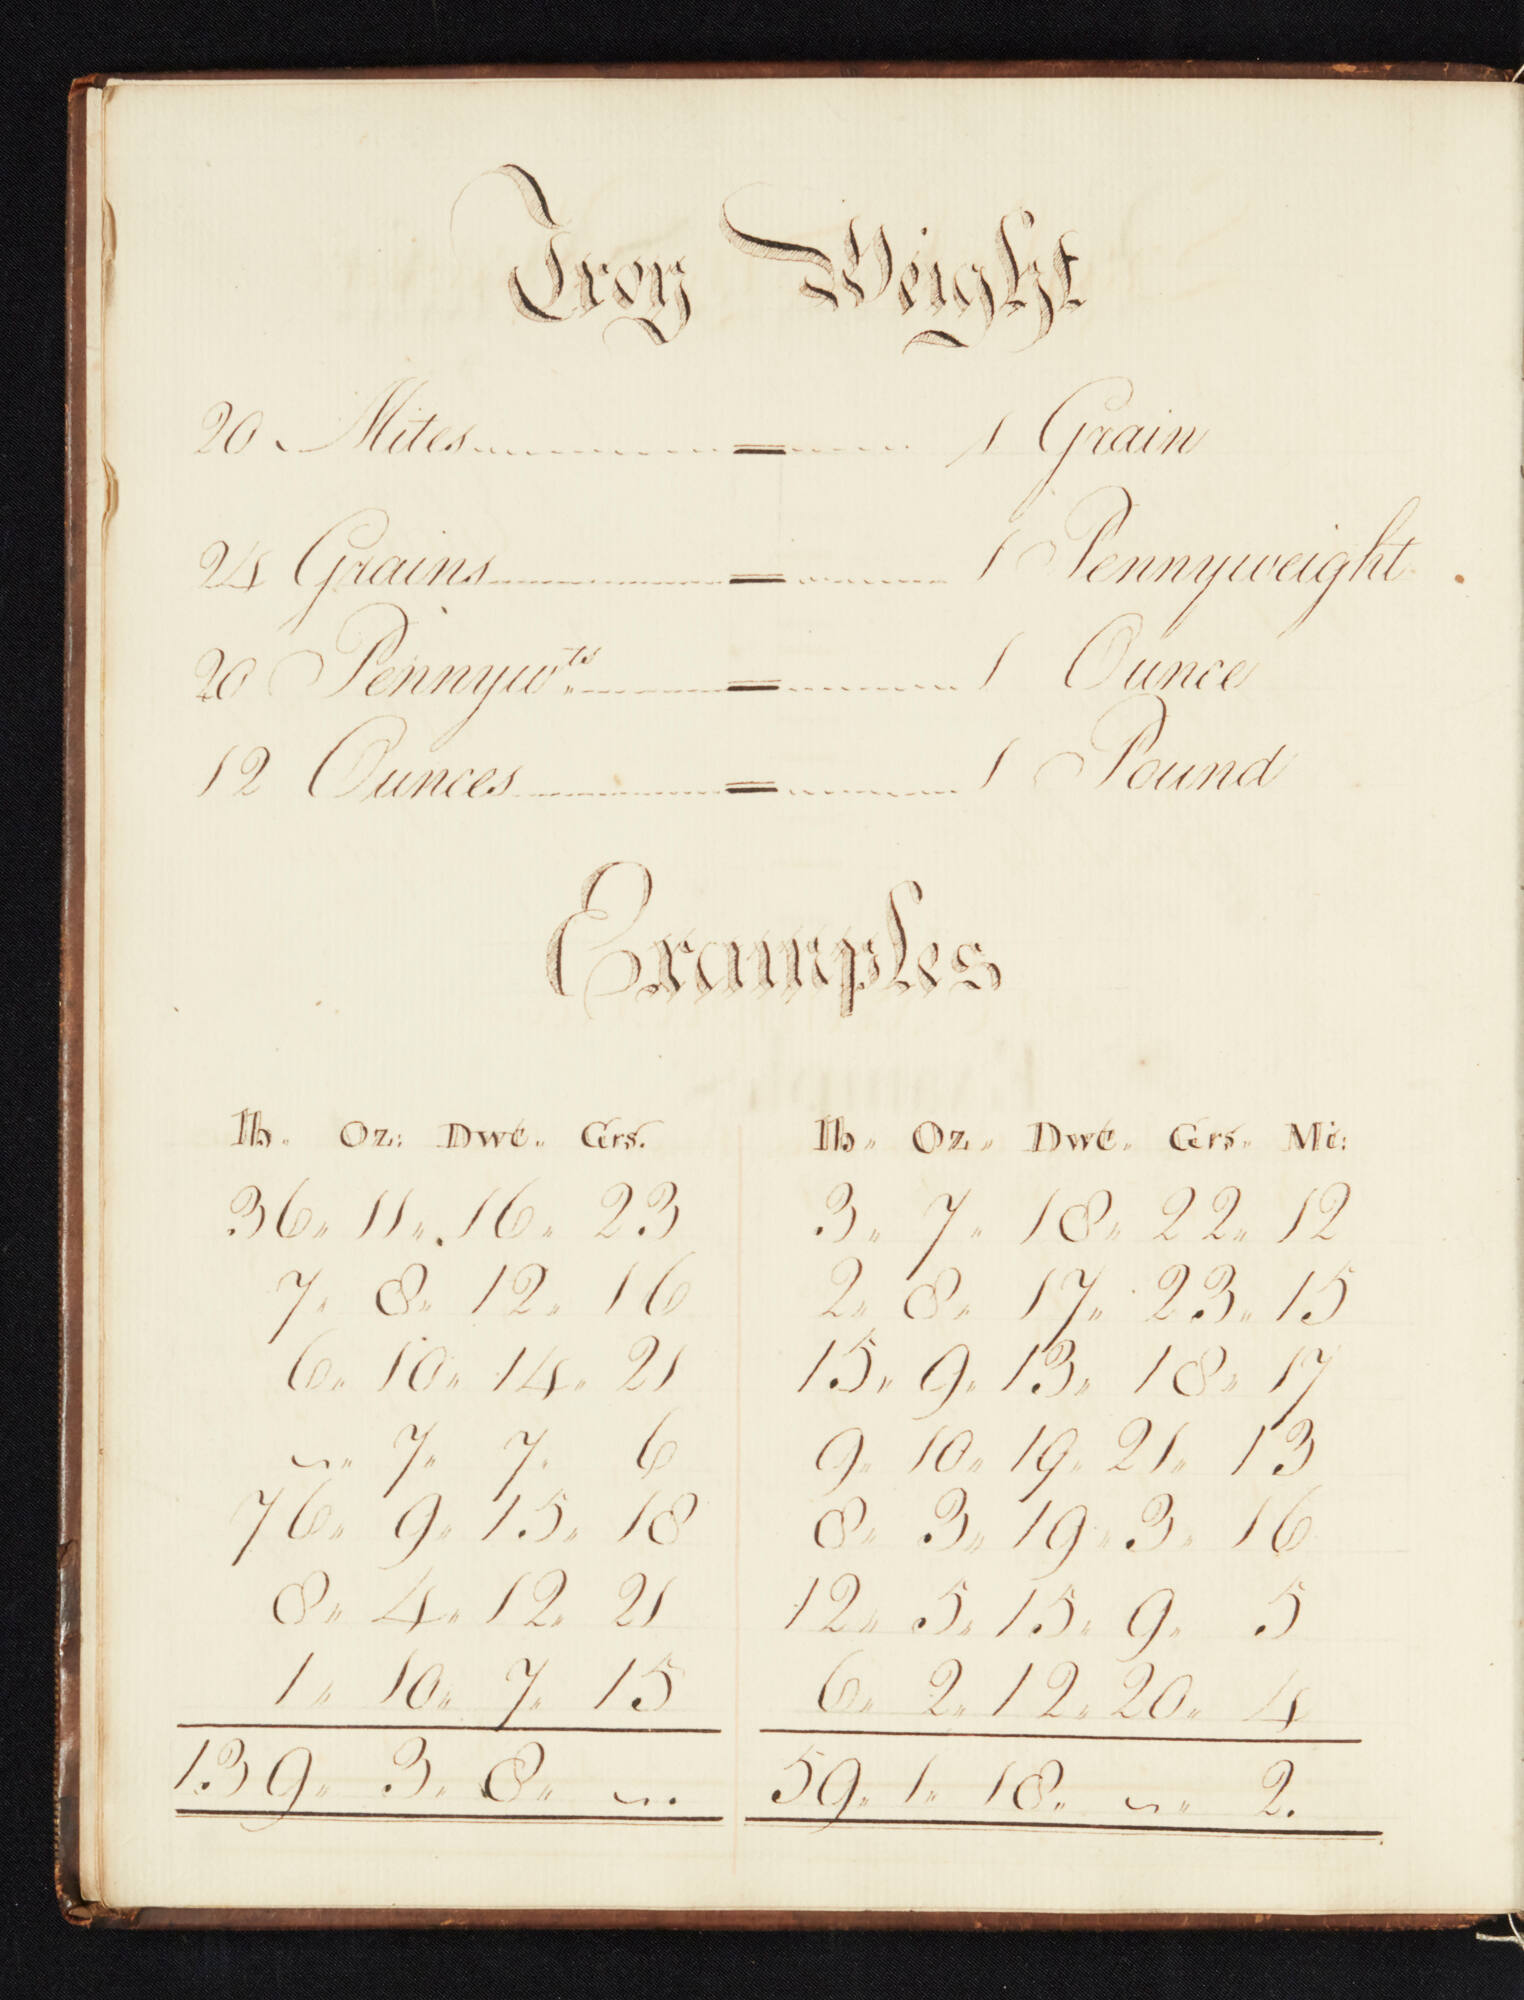 Troy Weight
20 Mites = 1 Grain
24 Grains = 1 Pennyweight
20 Pennywts = 1 Ounce
12 Ounces = 1 Pound
Examples
lb. Oz: Dwt.. Grs. lb.. Oz.. Dwt.. Grs.. Mi:
36.. 11.. 16.. 23 3.. 7.. 18.. 22.. 12
7.. 8.. 12.. 16 2.. 8.. 17.. 23.. 15
6.. 10.. 14.. 21 15.. 9.. 13.. 18.. 17
~.. 7.. 7.. 6 9.. 10.. 19.. 21.. 13
76.. 9.. 15.. 18 8.. 3.. 19.. 3.. 16
8.. 4.. 12.. 21 12.. 5.. 15.. 9.. 5
1.. 10.. 7.. 15 6.. 2.. 12.. 20.. 4
139.. 3.. 8.. ~. 59.. 1.. 18.. ~.. 2.